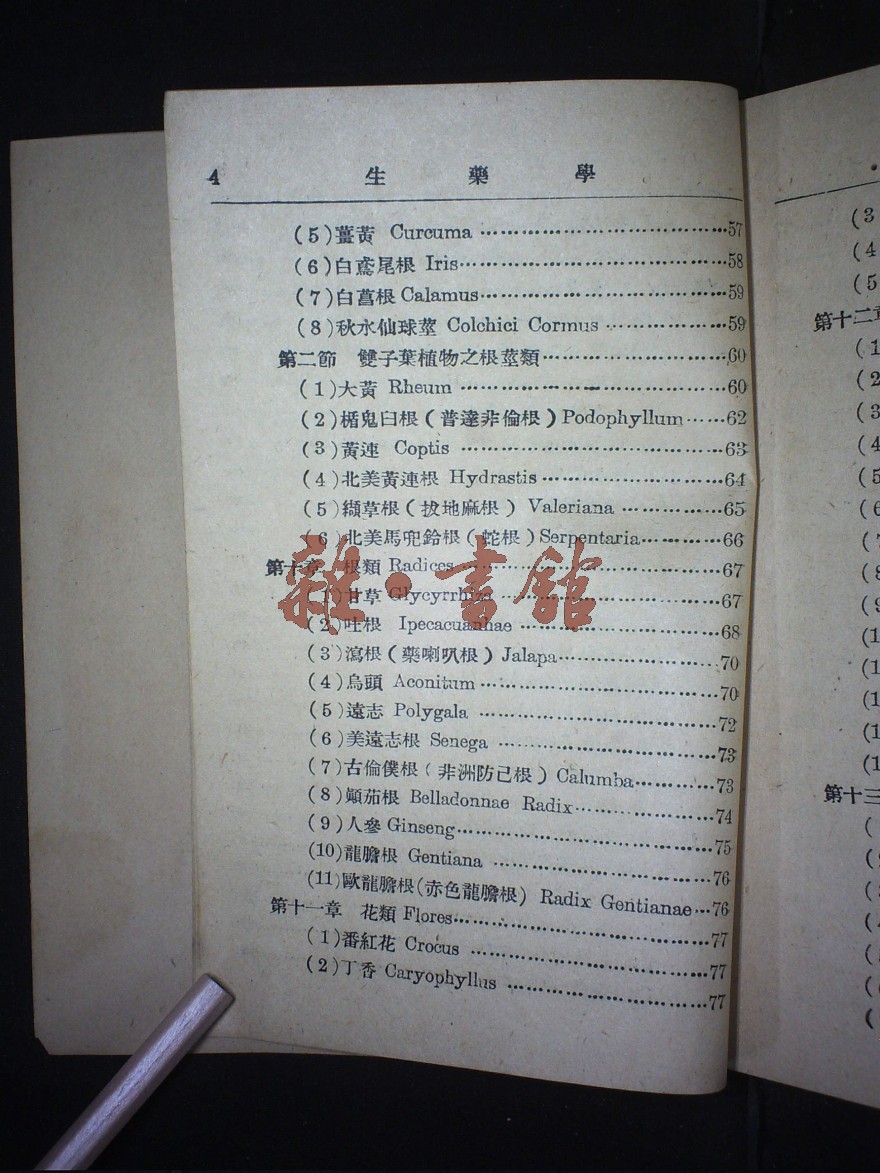 4 生藥學
(5)薑黃 Curcuma ……………………………57
(6)白鳶尾根 Iris……………………………58
(7)白菖根 Calamus……………………………59
(8)秋水仙球莖 Colchici Cormus ………………59
第二節 雙子葉植物之根莖類……………………60
(1)大黃 Rheum ……………………………60
(2)楯鬼臼根(普達非倫根)Podophyllum……62
(3)黃連 Coptis ……………………………63
(4)北美黃連根 Hydrastis……………………64
(5)纈草根(拔地麻根) Valeriana ……………65
(6)北美馬兜鈴根(蛇根)Serpentaria…………66
第十章 根類 Radices……………………………67
(1)甘草 Glycyrrhiza ……………………………67
(2)吐根 Ipecacuanhae ……………………………68
(3)瀉根(藥喇叭根)Jalapa……………………70
(4)烏頭 Aconitum ……………………………70
(5)遠志 Polygala ……………………………72
(6)美遠志根 Senega ……………………………73
(7)古倫僕根(非洲防己根)Calumba…………73
(8)顚茄根 Belladonnae Radix…………………74
(9)人參 Ginseng……………………………75
(10)龍膽根 Gentiana ……………………………76
(11)歐龍膽根(赤色龍膽根) Radix Gentianae…76
第十一章 花類 Flores……………………………77
(1)番紅花 Crocus ……………………………77
(2)丁香 Caryophyllus ……………………………77
雜·書館
(3
(4
(5
第十二章
(1
(2
(3
(4
(5
(6
(7
(8
(9
(1
(1
(1
(1
(1
第十三